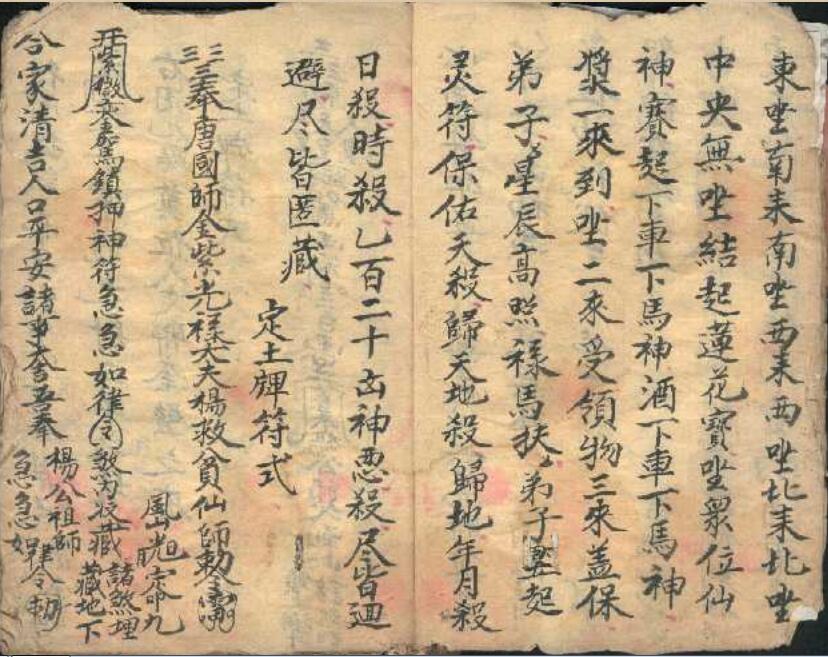 東坐南耒南坐西耒西坐北耒北坐
中央無坐結起蓮花寶坐眾位仙
神賽起下車下馬神酒下車下馬神
漿一來到坐二來受領物三來盖保
弟子星辰高照禄馬扶弟子
灵符保佑天殺歸天地殺歸地年月殺
日殺時殺乙百二十凶神悪殺尽皆廻
避尽皆匿藏
定土牌符式
奉唐國師金紫光禄大夫楊救貧仙師勅
紫微鎖神符急急如律令
諸煞埋
藏地下
合家清吉人口平安諸事大吉吾奉
楊公祖師
急急如律令勅